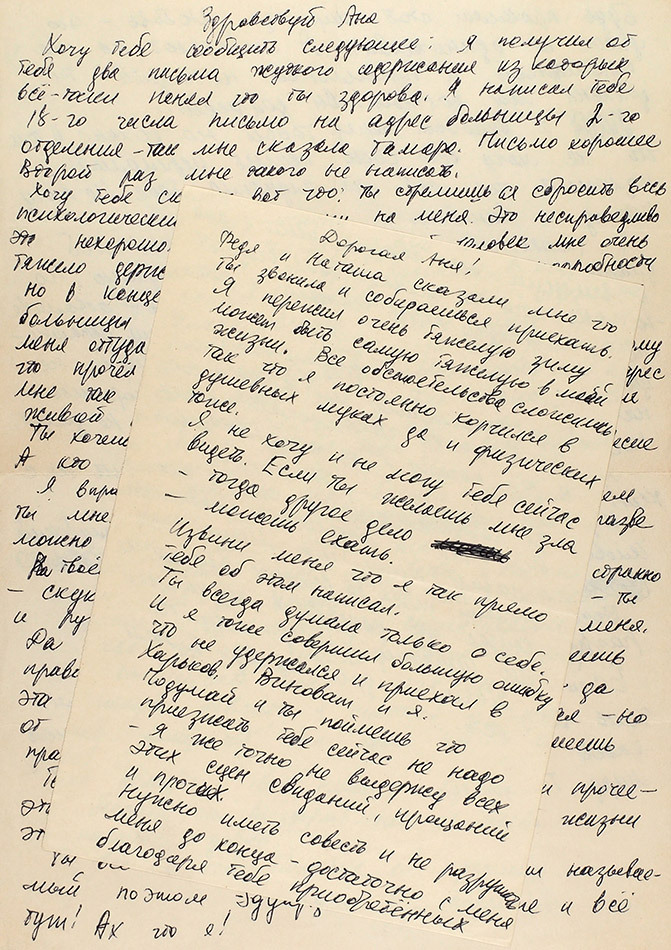 Здравствуй Аня
Хочу тебе сообщить следующее: я получил от
тебя два письма жуткого содержания из которых
всё-таки понял что ты здорова. Я написал тебе
18-го числа письмо на адрес больницы 2-го
отделения – так мне сказала Тамара. Письмо хорошее
Второй раз мне такого не написать.
Хочу тебе ск вот что: ты стремишься сбросить весь
психологический на меня. Это несправедливо
нехорошо. человек мне очень
тяжело держ
но в конце
больницы му
меня оттуда рес
что прочёл я
мне так
живой
Ты хочешь
А кто ем
Я впра разве
ты мне
можно странно
На твоё – ты
– скук меня.
и ру ешь
Да да
право ся – но
эта аешь
от
пра и прочее –
жизни
эт и называе-
эт и всё
ты
мый поэтом
тут! Ах что я!
Дорогая Аня!
Федя и Наташа сказали мне что
ты звонила и собираешься приехать.
Я перенёс очень тяжёлую зиму
может быть самую тяжёлую в моей
жизни. Все обстоятельства сложились
так что я постоянно корчился в
душевных муках да и физических
тоже.
Я не хочу и не могу тебе сейчас
видеть. Если ты желаешь мне зла
– тогда другое дело
– можешь ехать.
Извини меня что я так прямо
тебе об этом написал.
Ты всегда думала только о себе.
И я тоже совершил большую ошибку
что не удержался и приехал в
Харьков. Виноват и я.
Подумай и ты поймёшь что
приезжать тебе сейчас не надо
– я же точно не выдержу всех
этих сцен свиданий, прощаний
и прочих.
Нужно иметь совесть и не разрушать
меня до конца – достаточно с меня
благодаря тебе приобретённых